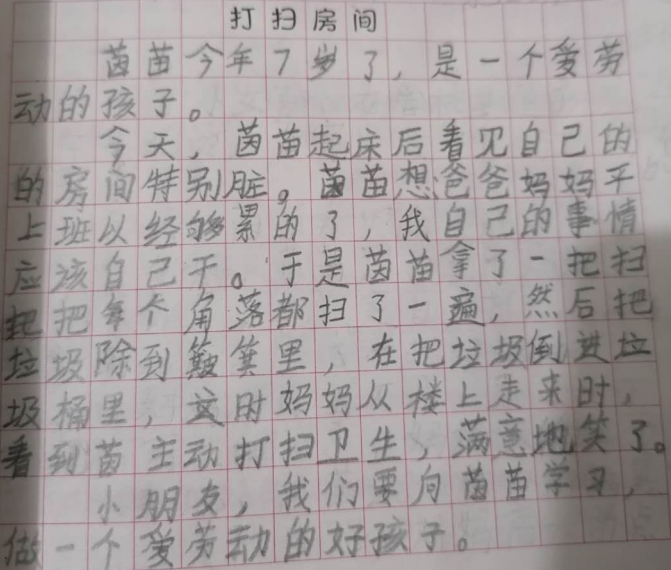 打扫房间
茵苗今年7岁了，是一个爱劳
动的孩子。
今天，茵苗起床后看见自己的
的房间特别脏。茵苗想爸爸妈妈平
上班以经够累的了，我自己的事情
应该自己干。于是茵苗拿了一把扫
把把每个角落都扫了一遍，然后把
垃圾除到簸箕里，在把垃圾倒进垃
圾桶里，这时妈妈从楼上走来时，
看到苗主动打扫卫生，满意地笑了。
小朋友，我们要向茵苗学习，
做一个爱劳动的好孩子。